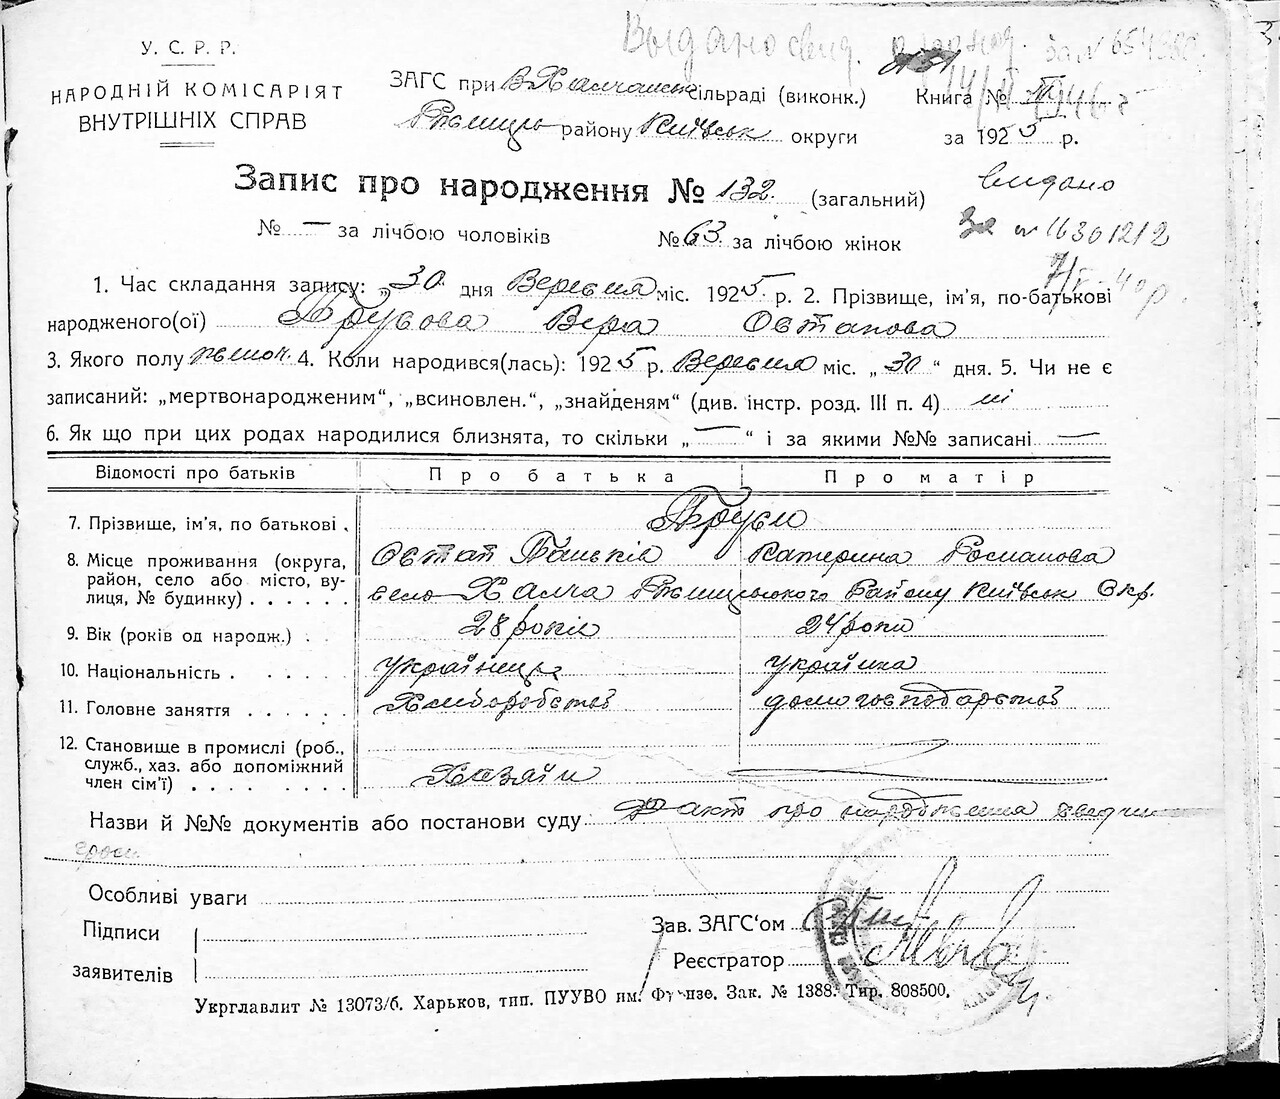 Выдано свид. о рожд. за № 654380.
У. С. Р. Р.
НАРОДНІЙ КОМІСАРІЯТ
ВНУТРІШНІХ СПРАВ
ЗАГС при В Халчанськ сільраді (виконк.) Книга № III
району Київськ округи за 1925 р.
Запис про народження № 132. (загальний)
видано
№ — за лічбою чоловіків № 63. за лічбою жінок
за № 16301212
1. Час складання запису: „30" дня Вересня міс. 1925 р. 2. Прізвище, ім'я, по-батькові
народженого(ої) Вера Остапова
3. Якого полу жінок. 4. Коли народився(лась): 1925 р. Вересня міс. „30" дня. 5. Чи не є
записаний: „мертвонародженим", „всиновлен.", „знайденям" (див. інстр. розд. III п. 4) ні
6. Як що при цих родах народилися близнята, то скільки „—" і за якими №№ записані —
Відомості про батьків Про батька Про матір
7. Прізвище, ім'я, по батькові
Остап Паньків Катерина Романова
8. Місце проживання (округа, район, село або місто, вулиця, № будинку) село Халча Району Київськ Окр.
9. Вік (років од народж.) 28 років 24 роки
10. Національність українець українка
11. Головне заняття Хліборобство домогосподарство
12. Становище в промислі (роб., служб., хаз. або допоміжний член сім'ї) Хазяїн
Назви й №№ документів або постанови суду Факт про народження
Особливі уваги
Підписи
заявителів
Зав. ЗАГС'ом
Реєстратор
Укрглавлит № 13073/б. Харьков, тип. ПУУВО им. Фрунзе. Зак. № 1388. Тир. 808500.